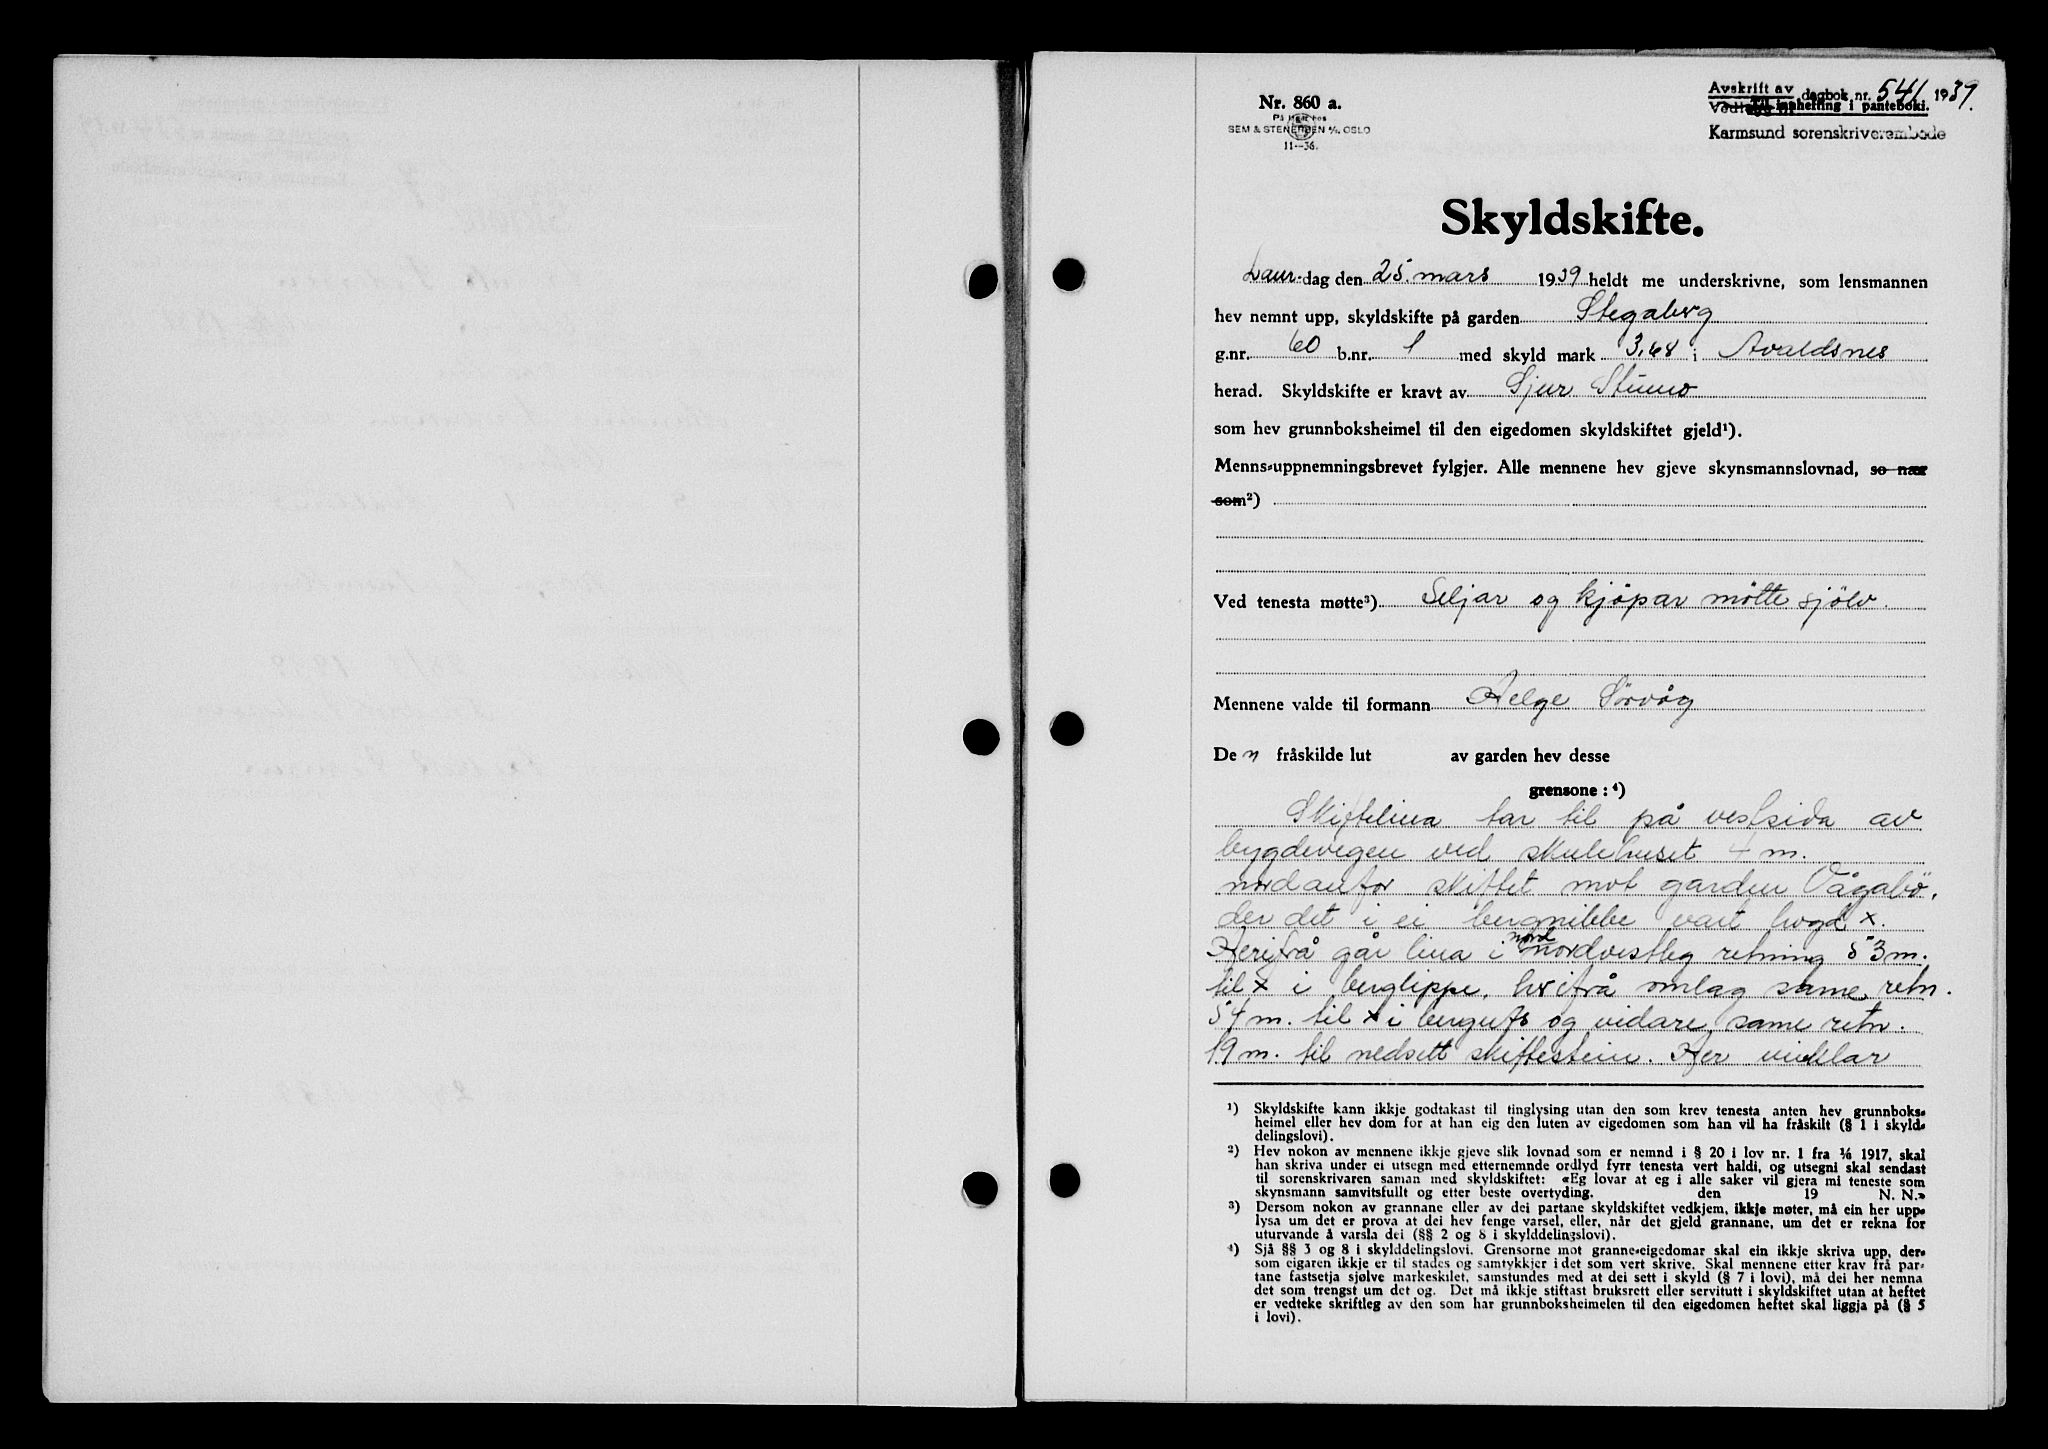 Nr. 860 a.
På lager hos
SEM & STENERSEN A/S OSLO
11—36.
Avskrift av dagbok nr. 541 1939.
Til innhefting i panteboki.
Karmsund sorenskriverembede
Skyldskifte.
Laur-dag den 25. mars 1939 heldt me underskrivne, som lensmannen
hev nemnt upp, skyldskifte på garden Stegaberg
g.nr. 60 b.nr. 1 med skyld mark 3,68 i Avaldsnes
herad. Skyldskifte er kravt av Sjur
som hev grunnboksheimel til den eigedomen skyldskiftet gjeld¹).
Menns-uppnemningsbrevet fylgjer. Alle mennene hev gjeve skynsmannslovnad, so nær
som²)
Ved tenesta møtte³) Seljar og kjöpar mötte sjölv.
Mennene valde til formann Helge Sørvåg
De n fråskilde lut av garden hev desse
grensone: ⁴)
Skiftelina tar til på vestsida av
bygdevegen ved skulehuset 4 m.
nordanfor skiftet mot garden Vågabö,
der det i ei bergnibbe vart hogd x.
Herifrå går lina i nord nordvestleg retning 53 m.
til x i berglippe, herifrå omlag same retn.
54 m. til x i bergufs og vidare same retn.
19 m. til nedsett skiftestein. Her vinklar
¹) Skyldskifte kann ikkje godtakast til tinglysing utan den som krev tenesta anten hev grunnboks-
heimel eller hev dom for at han eig den luten av eigedomen som han vil ha fråskilt (§ 1 i skyld-
delingslovi).
²) Hev nokon av mennene ikkje gjeve slik lovnad som er nemnd i § 20 i lov nr. 1 fra 1/6 1917, skal
han skriva under ei utsegn med etternemnde ordlyd fyrr tenesta vert haldi, og utsegni skal sendast
til sorenskrivaren saman med skyldskiftet: «Eg lovar at eg i alle saker vil gjera mi teneste som
skynsmann samvitsfullt og etter beste overtyding. den 19 N. N.»
³) Dersom nokon av grannane eller av dei partane skyldskiftet vedkjem, ikkje møter, må ein her upp-
lysa um det er prova at dei hev fenge varsel, eller, når det gjeld grannane, um det er rekna for
uturvande å varsla dei (§§ 2 og 8 i skylddelingslovi).
⁴) Sjå §§ 3 og 8 i skylddelingslovi. Grensorne mot granne-eigedomar skal ein ikkje skriva upp, der-
som eigaren ikkje er til stades og samtykkjer i det som vert skrive. Skal mennene etter krav frå par-
tane fastsetja sjølve merkeskilet, samstundes med at dei sett i skyld (§ 7 i lovi), må dei her nemna
det som trengst um det og. Det må ikkje stiftast bruksrett eller servitutt i skyldskiftet utan at heftet
er vedteke skriftleg av den som har grunnboksheimelen til den eigedomen heftet skal liggja på (§ 5
i lovi).